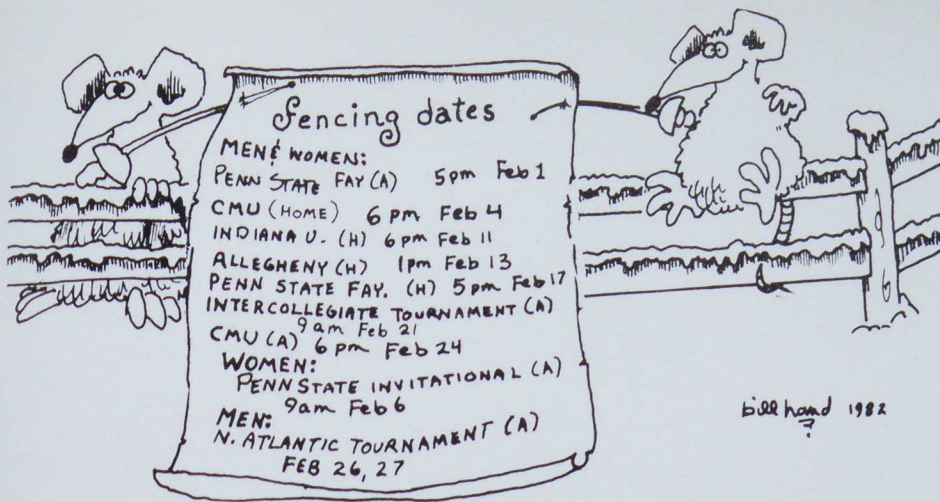 fencing dates
MEN & WOMEN:
PENN STATE FAY (A) 5pm Feb 1
CMU (HOME) 6 pm Feb 4
INDIANA U. (H) 6 pm Feb 11
ALLEGHENY (H) 1pm Feb 13
PENN STATE FAY. (H) 5pm Feb 17
INTERCOLLEGIATE TOURNAMENT (A)
9am Feb 21
CMU (A) 6 pm Feb 24
WOMEN:
PENN STATE INVITATIONAL (A)
9am Feb 6
MEN:
N. ATLANTIC TOURNAMENT (A)
FEB 26, 27
bill hand 1982
?